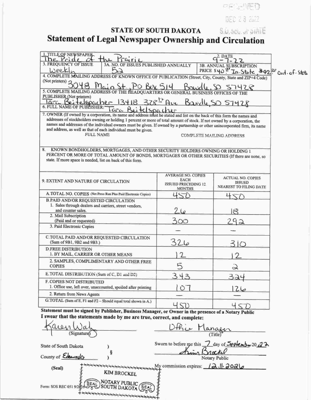 STATE OF SOUTH DAKOTA
Statement of Legal Newspaper Ownership and Circulation
1. TITLE OF NEWSPAPER
The Pride of the Prairie
2. DATE
9-7-22
3. FREQUENCY OF ISSUE
Weekly
3A. NO. OF ISSUES PUBLISHED ANNUALLY
52
3B. ANNUAL SUBSCRIPTION
PRICE $40 In-State
4. COMPLETE MAILING ADDRESS OF KNOWN OFFICE OF PUBLICATION (Street, City, County, State and ZIP+4 Code)
(Not printers)
3048 Main St. PO Box 514 Bowdle, SD 57428
5. COMPLETE MAILING ADDRESS OF THE HEADQUARTERS OR GENERAL BUSINESS OFFICES OF THE
PUBLISHER (Not printers)
Tara Beitelspacher 13418 Bowdle, SD 57428
6. FULL NAME OF PUBLISHER:
Tara Beitelspacher
7. OWNER (If owned by a corporation, its name and address must be stated and list on the back of this form the names and
addresses of stockholders owning or holding 1 percent or more of total amount of stock. If not owned by a corporation, the
names and addresses of the individual owners must be given. If owned by a partnership or other unincorporated firm, its name
and address, as well as that of each individual must be given.
FULL NAME COMPLETE MAILING ADDRESS
8. KNOWN BONDHOLDERS, MORTGAGEES, AND OTHER SECURITY HOLDERS OWNING OR HOLDING 1
PERCENT OR MORE OF TOTAL AMOUNT OF BONDS, MORTGAGES OR OTHER SECURITIES (If there are none, so
state. If more space is needed, list on back of this form.
9. EXTENT AND NATURE OF CIRCULATION
AVERAGE NO. COPIES
EACH
ISSUED PRECEDING 12
MONTHS
ACTUAL NO. COPIES
ISSUED
NEAREST TO FILING DATE
A. TOTAL NO. COPIES
450 450
B. PAID AND/OR REQUESTED CIRCULATION
1. Sales through dealers and carriers, street vendors,
and counter sales.
26 18
2. Mail Subscription
(Paid and/or requested)
300 292
3. Paid Electronic Copies
— —
C. TOTAL PAID AND/OR REQUESTED CIRCULATION
(Sum of 9B1, 9B2 and 9B3.)
326 310
D. FREE DISTRIBUTION
1. BY MAIL, CARRIER OR OTHER MEANS
12 12
2. SAMPLES, COMPLIMENTARY AND OTHER FREE
COPIES
5 2
E. TOTAL DISTRIBUTION (Sum of C, D1 and D2)
343 324
F. COPIES NOT DISTRIBUTED
1. Office use, left over, unaccounted, spoiled after printing
107 126
2. Return from News Agents
— —
G. TOTAL (Sum of E, F1 and F2 - Should equal total shown in A.)
450 450
Statement must be signed by Publisher, Business Manager, or Owner in the presence of a Notary Public
I swear that the statements made by me are true, correct, and complete:
Office Manager
(Signature) (Title)
State of South Dakota )
County of Edmunds )
Sworn to before me this 7 day of September 2022
Kim Brockel
(Seal)
My commission expires:
KIM BROCKEL
SEAL NOTARY PUBLIC SEAL
SOUTH DAKOTA